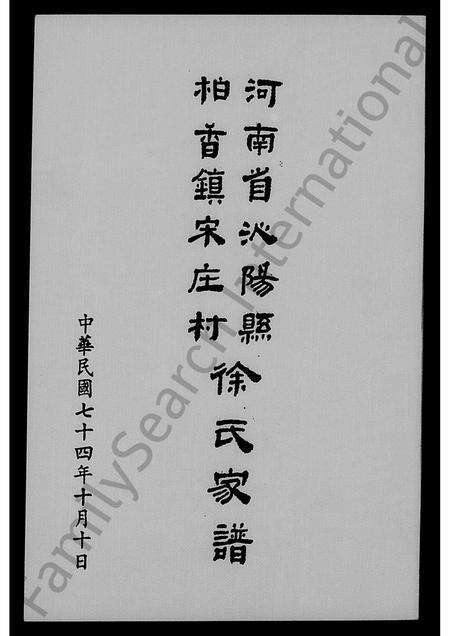 河南省沁陽縣
柏香鎮宋庄村
徐氏家譜
中華民國七十四年十月十日
FamilySearch International